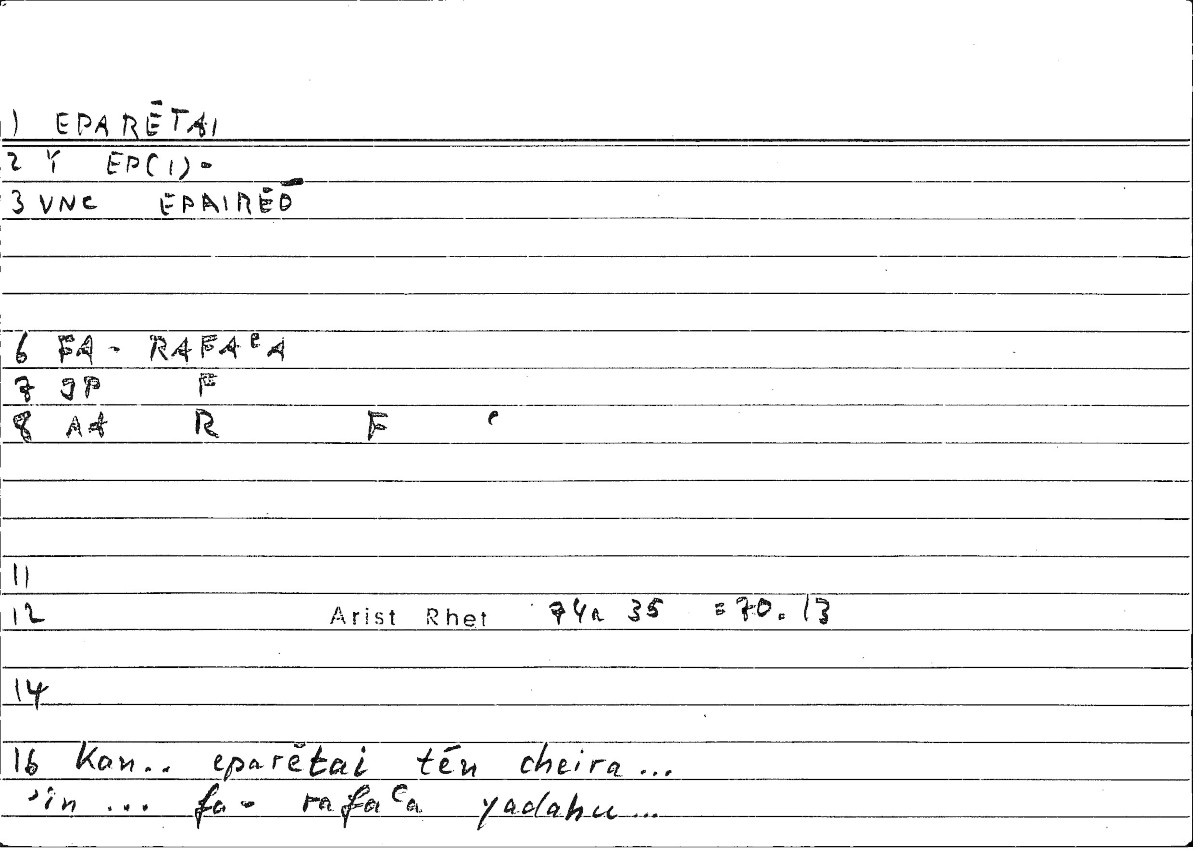 1) EPARĒTAI
2 Y EP(I)-
3 VNC EPAIRĒŌ
6 FA- RAFAᶜA
7 JP F
8 AA R F ᶜ
11
12 Arist Rhet 74a 35 =70.13
14
16 Kan.. eparētai tēn cheira...
'in ... fa- rafaᶜa yadahu...